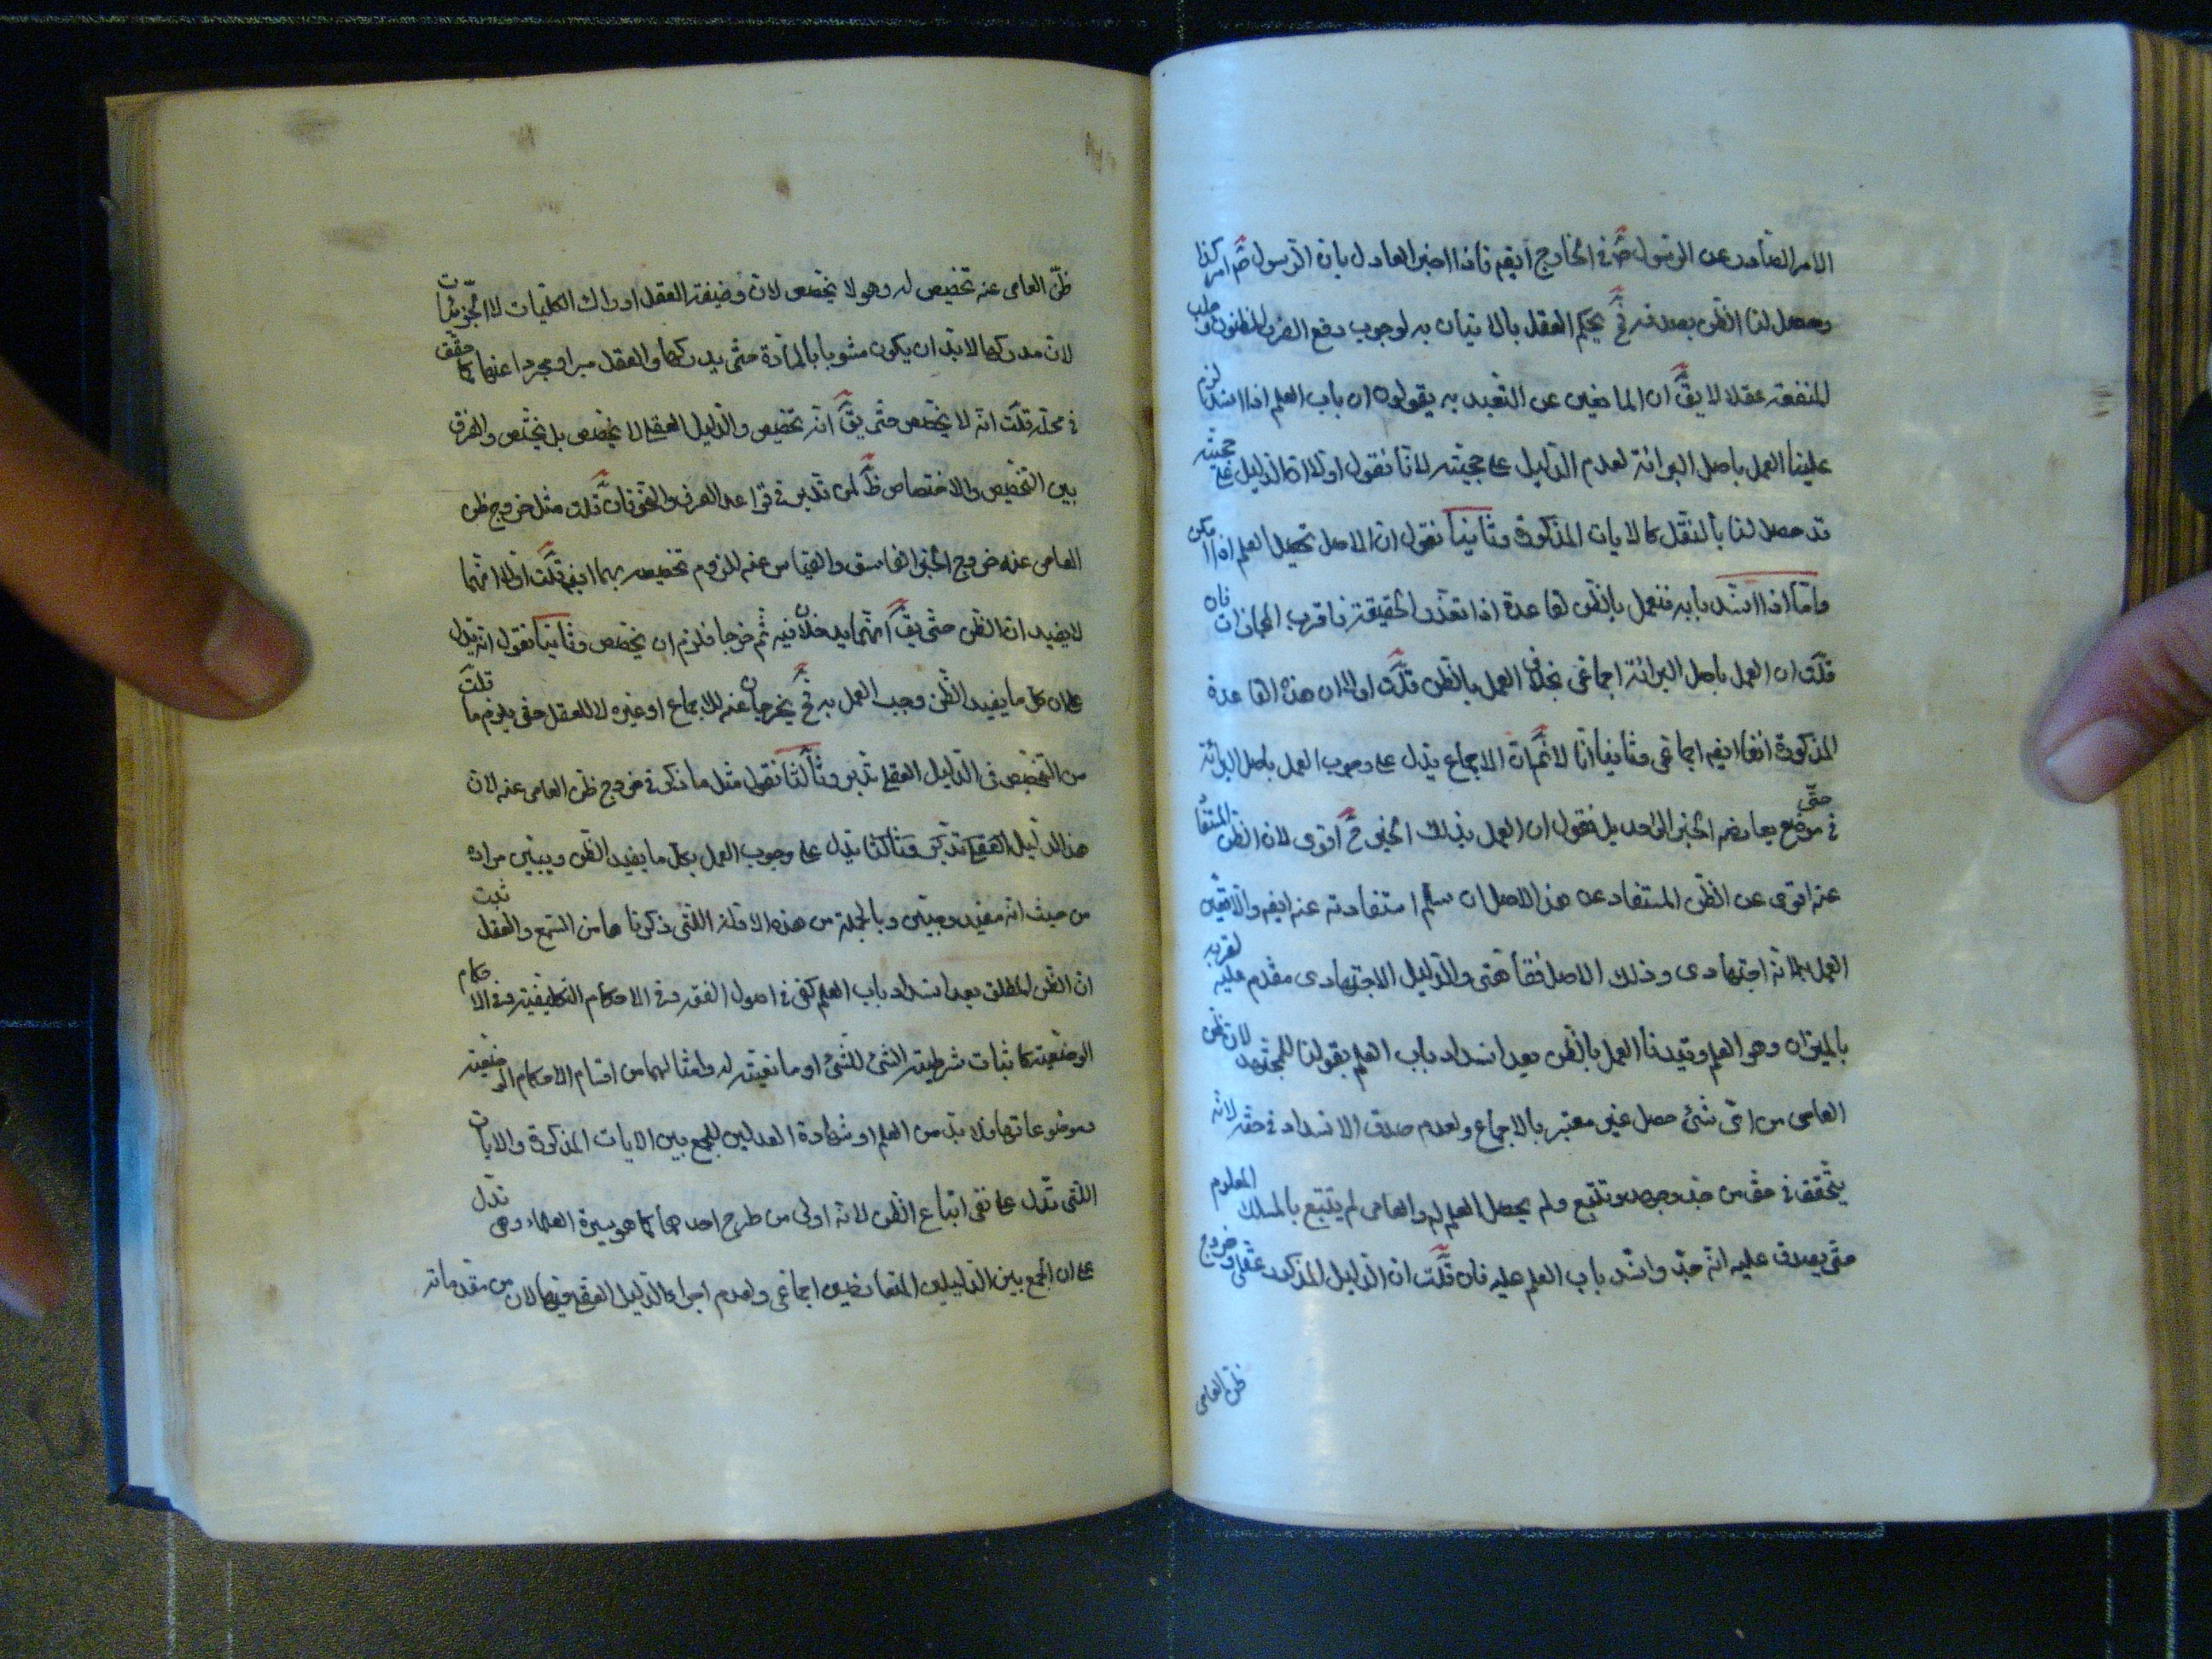 الامر الصادر عن الرسول صٓ في الخارج ايضم فاذا اخبر العادل بان الرسول صٓ امر كذا
وحصل لنا الظن بصدقه فحٓ يحكم العقل بالاتيان به لوجوب دفع الضرر المظنون وجلب
المنفعة عقلا لا يقٓ ان المانعين عن التعبد به يقولون ان باب العلم اذا انسد لزم
علينا العمل باصل البرائة لعدم الدليل على حجيته لانا نقول اولا ان الدليل على حجيته
قد حصل لنا بالنقل كالايات المذكورة وثانيا نقول ان الاصل تحصيل العلم اذا امكن
واما اذا انسد بابه فنعمل بالظن لقاعدة اذا تعذر الحقيقة فاقرب المجازات فان
قلت ان العمل باصل البرائة اجماعي بخلاف العمل بالظن قلت اولا ان هذه القاعدة
المذكورة انفا ايضم اجماعي وثانيا انا لا نمٓ ان الاجماع يدل على وجوب العمل باصل البرائة
في موضع يعارضه الخبر الواحد بل نقول ان العمل بذلك الخبر حٓ اقوى لان الظن المستفا حتى
عنه اقوى عن الظن المستفاد عن هذا الاصل ان سلم استفادته عنه ايضم والا تعين
العمل به لانه اجتهادي وذلك الاصل فقاهتي والدليل الاجتهادي مقدم عليه لقربه
بالميزان وهو العلم وقيدنا العمل بالظن بعد انسداد باب العلم بقولنا للمجتهد لان ظن
العامي من اي شئ حصل غير معتبر بالاجماع ولعدم صدق الانسداد في حقه لانه
يتحقق في حق من جد وجهد وتتبع ولم يحصل العلم له والعامي لم يتتبع بالمسلك المعلوم
حتى يصدق عليه انه جد وانسد باب العلم عليه فان قلت ان الدليل المذكور عقلي وخروج
ظن العامي
ظن العامي عنه تخصيص له وهو لا يخصص لان وضيفة العقل ادراك الكليات لا الجزئيات
لان مدركها لابد ان يكون مشوبا بالمادة حتى يدركها والعقل مبرا ومجرد عنها كما حقق
في محله قلت انه لا يخصص حتى يقٓ انه تخصيص والدليل العقلي لا يخصص بل يختص والفرق
بين التخصيص والاختصاص ظٓ لمن تدبر في قواعد العرف والنحو فان قلت مثل خروج ظن
العامي عنه خروج الخبر الفاسق والقياس عنه للزوم تخصيصه بهما ايضم قلت اولا انهما
لا يفيدان الظن حتى يقٓ انهما يدخلان فيه ثم خرجا فلزم ان يخصص وثانيا نقول انه يدل
على ان كل ما يفيد الظن وجب العمل به فحٓ يخرجان عنه للاجماع او غيره لا للعقل حتى يلزم ما قلت
من التخصيص في الدليل العقلي تدبر وثالثا نقول مثل ما ذكر في خروج ظن العامي عنه لان
هذا الدليل العقلي تدبر وثالثا يدل على وجوب العمل بكل ما يفيد الظن ويبين مراده
من حيث انه مفيد ومبين وبالجملة من هذه الادلة اللتي ذكرناها من السمع والعقل ثبت
ان الظن المطلق بعد انسداد باب العلم كفى في اصول الفقه وفي الاحكام التكليفية وفي الاحكام
الوضعية كاثبات شرطية الشئ للشئ او مانعيته له وامثالهما من اقسام الاحكام الوضعية
وموضوعاتها فلابد من العلم او شهادة العدلين للجمع بين الايات المذكورة والايات
اللتي تدل على نفي اتباع الظن لانه اولى من طرح احدهما كما هو سيرة العلماء وهي تدل
على ان الجمع بين الدليلين المتعارضين اجماعي ولعدم اجراء الدليل العقلي فيها لان من مقدماته